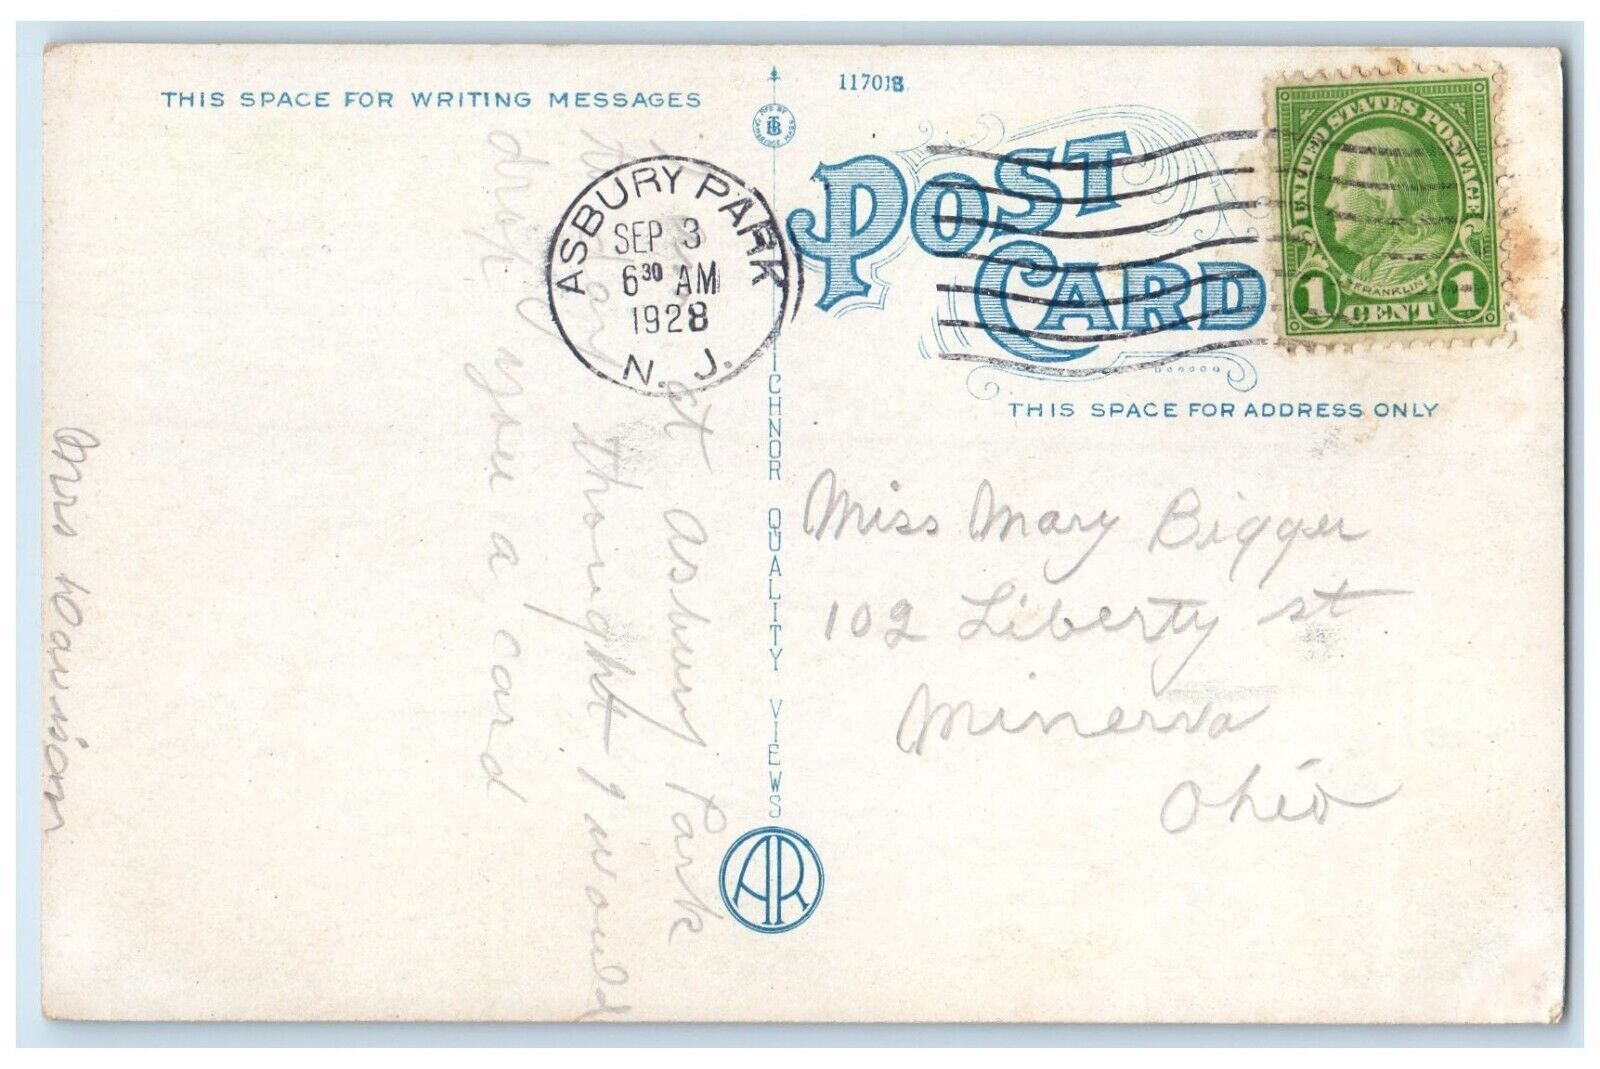 THIS SPACE FOR WRITING MESSAGES
117018
POST CARD
THIS SPACE FOR ADDRESS ONLY
UNITED STATES POSTAGE
FRANKLIN
1 CENT 1
ASBURY PARK
SEP 3
6 30 AM
1928
N. J.
TICHNOR QUALITY VIEWS
AR
at Asbury Park
today thought I would
drop you a card
Mrs
Miss Mary Bigger
102 Liberty st
Minerva
Ohio